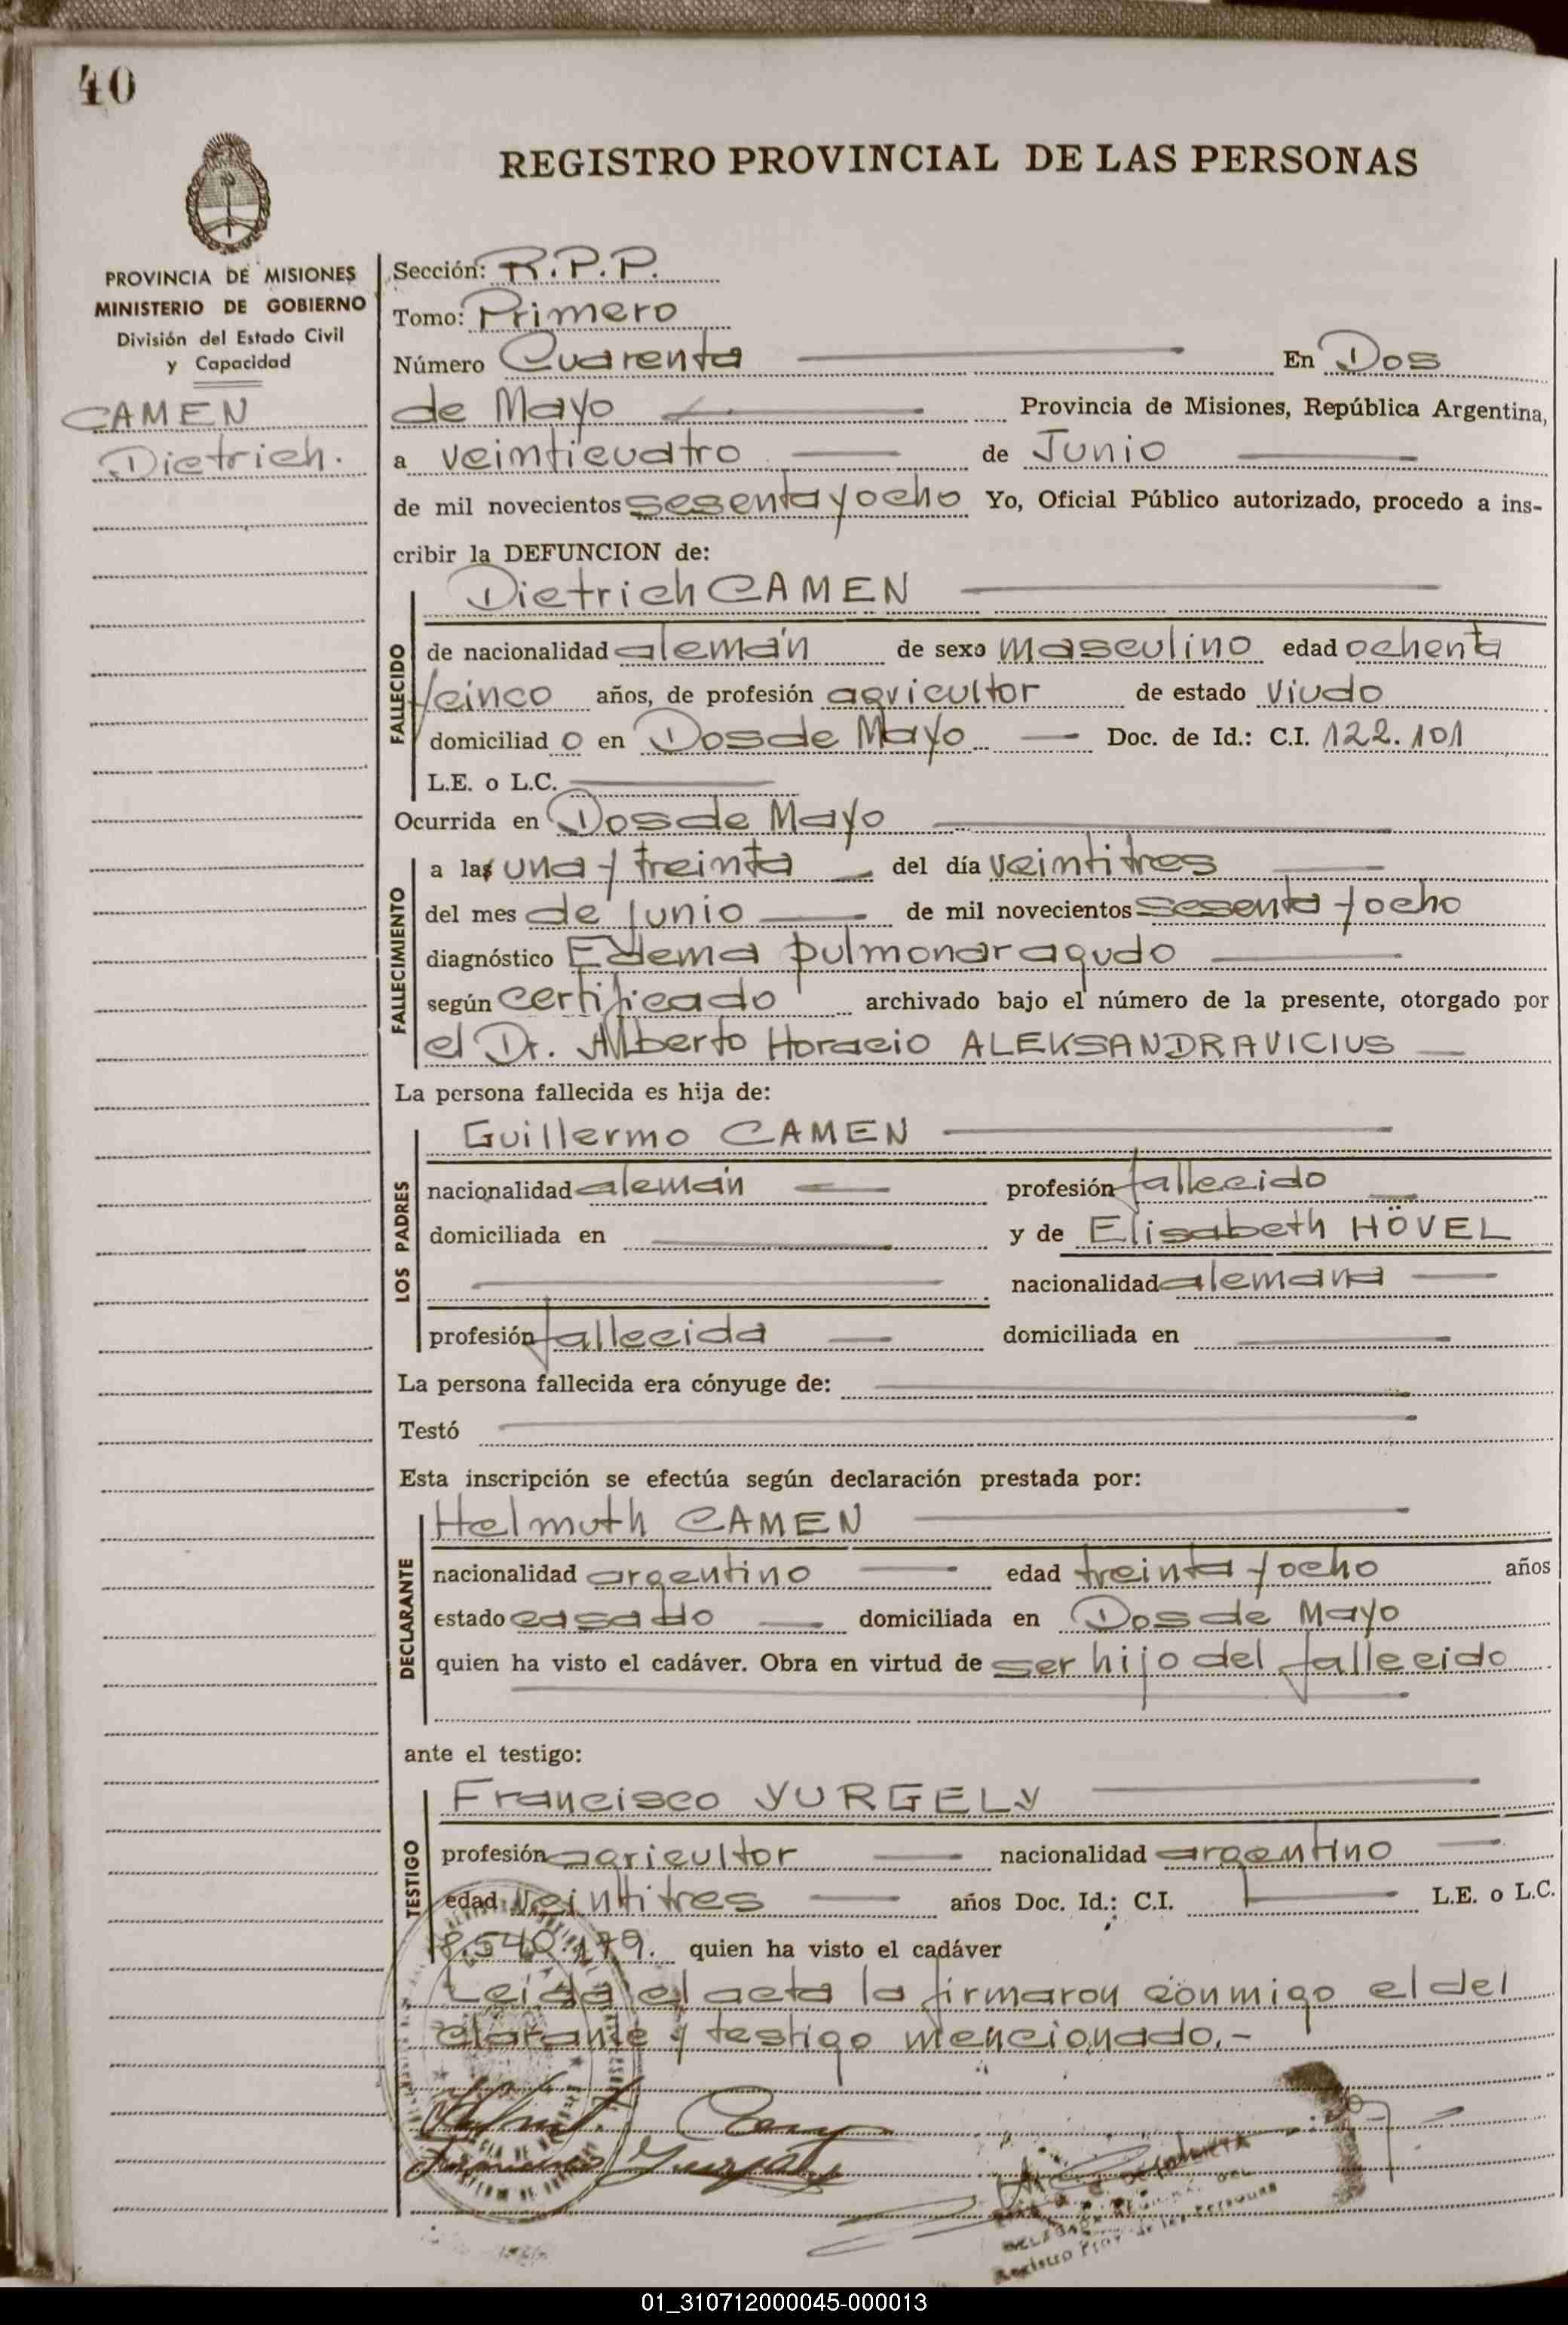 40
REGISTRO PROVINCIAL DE LAS PERSONAS
PROVINCIA DE MISIONES
MINISTERIO DE GOBIERNO
División del Estado Civil
y Capacidad
CAMEN
Dietrich.
Sección: R.P.P.
Tomo: Primero
Número Cuarenta En Dos
de Mayo Provincia de Misiones, República Argentina,
a veinticuatro de Junio
de mil novecientos sesenta y ocho Yo, Oficial Público autorizado, procedo a ins-
cribir la DEFUNCION de:
FALLECIDO
Dietrich CAMEN
de nacionalidad alemán de sexo masculino edad ochenta
y cinco años, de profesión agricultor de estado viudo
domiciliad o en Dos de Mayo Doc. de Id.: C.I. 122.101
L.E. o L.C.
Ocurrida en Dos de Mayo
FALLECIMIENTO
a las una y treinta del día veintitres
del mes de junio de mil novecientos sesenta y ocho
diagnóstico Edema pulmonar agudo
según certificado archivado bajo el número de la presente, otorgado por
el Dr. Alberto Horacio ALEKSANDRAVICIUS
La persona fallecida es hija de:
LOS PADRES
Guillermo CAMEN
nacionalidad alemán profesión fallecido
domiciliada en y de Elisabeth HÖVEL
nacionalidad alemana
profesión fallecida domiciliada en
La persona fallecida era cónyuge de:
Testó
Esta inscripción se efectúa según declaración prestada por:
DECLARANTE
Helmuth CAMEN
nacionalidad argentino edad treinta y ocho años
estado casado domiciliada en Dos de Mayo
quien ha visto el cadáver. Obra en virtud de ser hijo del fallecido
ante el testigo:
TESTIGO
Francisco YURGELY
profesión agricultor nacionalidad argentino
edad veintitres años Doc. Id.: C.I. L.E. o L.C.
8.540.179. quien ha visto el cadáver
Leida el acta la firmaron conmigo el del
clarante y testigo mencionado.-
Registro Prov. de las Personas
01_310712000045-000013